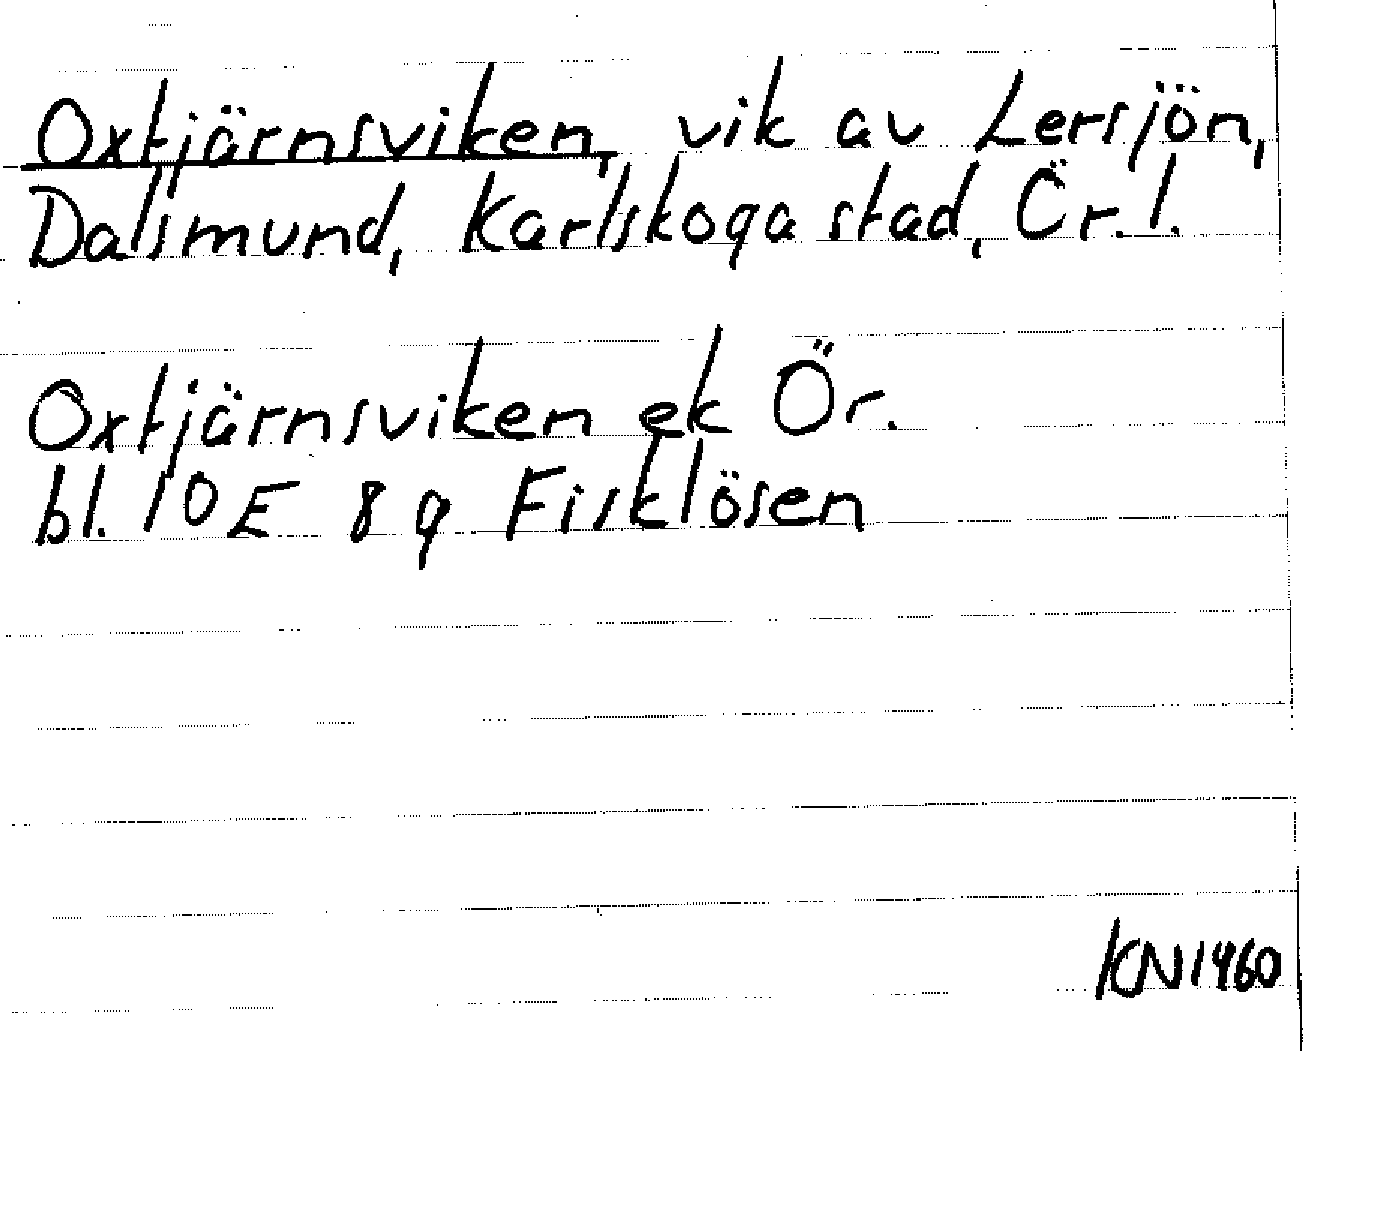 Oxtjärnsviken, vik av Lersjön,
Dalsmund, Karlskoga stad, Ör. l.
Oxtjärnsviken ek Ör.
bl. 10E 8g Fisklösen
KN1460